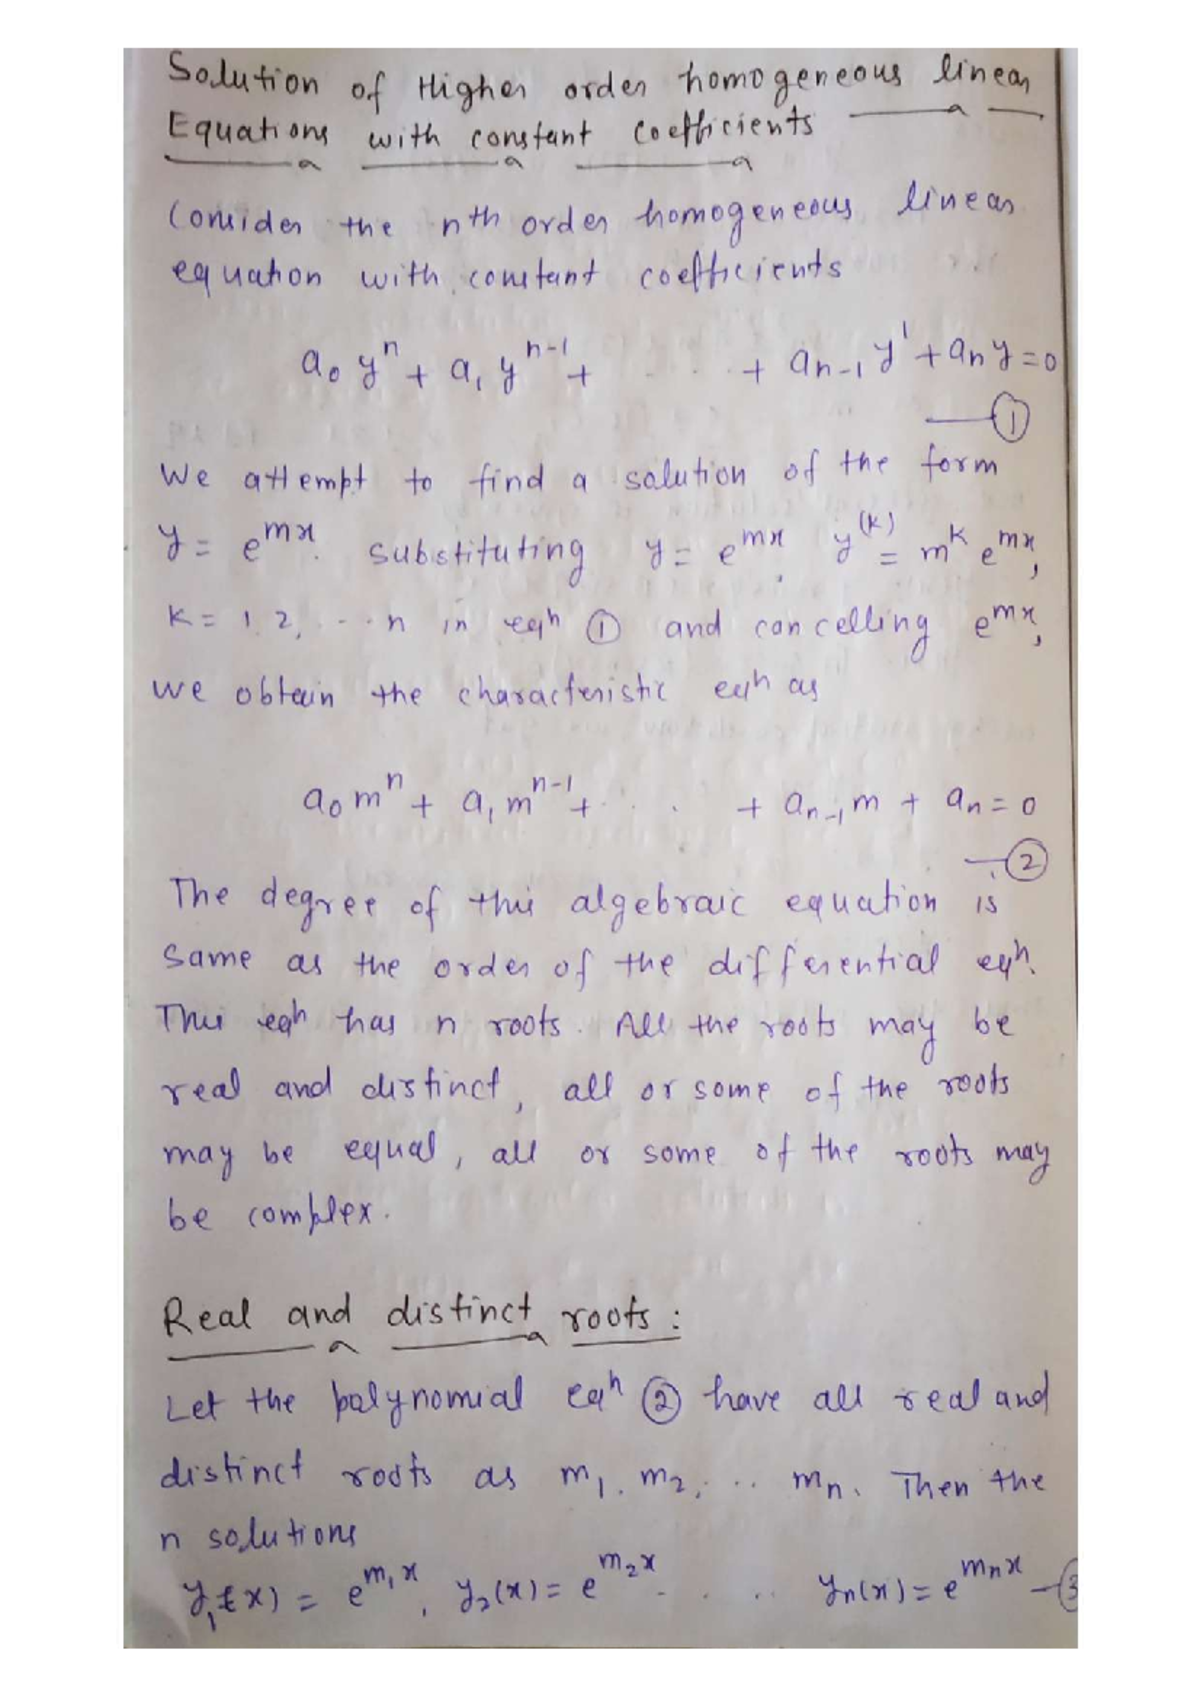 Solution of Higher order homogeneous linear
Equations with constant coefficients
Consider the nth order homogeneous linear
equation with constant coefficients
a₀ yⁿ + a₁ yⁿ⁻¹ + . . . . + aₙ₋₁ y' + aₙ y = 0
— ①
We attempt to find a solution of the form
y = e^{mx}. substituting y = e^{mx}, y^{(k)} = m^k e^{mx},
k = 1, 2, ... n in eqⁿ ① and cancelling e^{mx},
we obtain the characteristic eqⁿ as
a₀ mⁿ + a₁ mⁿ⁻¹ + . . . + aₙ₋₁ m + aₙ = 0
— ②
The degree of this algebraic equation is
same as the order of the differential eqⁿ.
This eqⁿ has n roots. All the roots may be
real and distinct, all or some of the roots
may be equal, all or some of the roots may
be complex.
Real and distinct roots :
Let the polynomial eqⁿ ② have all real and
distinct roots as m₁, m₂, ... mₙ. Then the
n solutions
y₁(x) = e^{m₁x}, y₂(x) = e^{m₂x} . . . . yₙ(x) = e^{mₙx} — ③